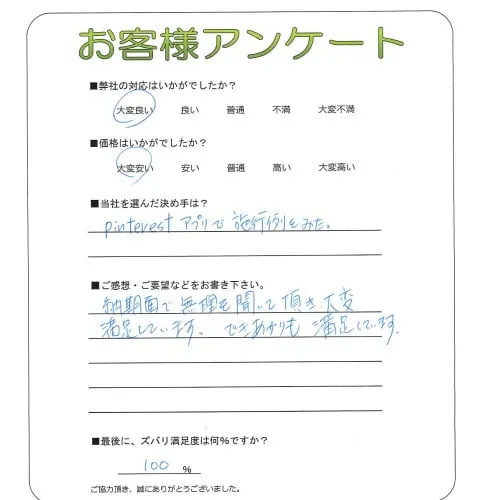 お客様アンケート
■弊社の対応はいかがでしたか?
大変良い 良い 普通 不満 大変不満
■価格はいかがでしたか?
大変安い 安い 普通 高い 大変高い
■当社を選んだ決め手は?
pinterestアプリで施行例をみた。
■ご感想・ご要望などをお書き下さい。
納期面で無理を聞いて頂き大変
満足しています。できあがりも満足しています。
■最後に、ズバリ満足度は何%ですか?
100 %
ご協力頂き、誠にありがとうございました。